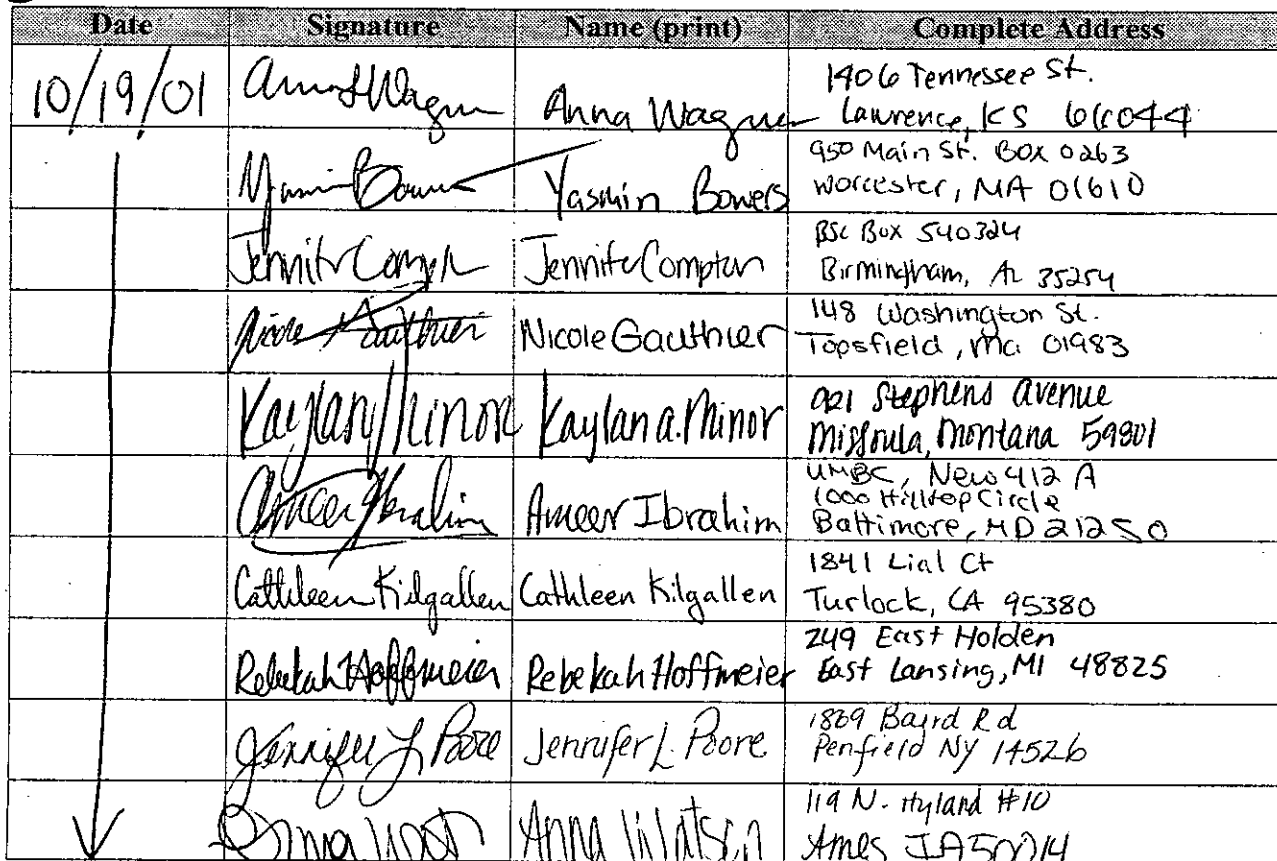 Date Signature Name (print) Complete Address
10/19/01 Anna Wagner 1406 Tennessee St.
Lawrence, KS 66044
Yasmin Bowers 950 Main St. Box 0263
Worcester, MA 01610
Jennifer Compton BSC Box 540324
Birmingham, AL 35254
Nicole Gauthier Nicole Gauthier 148 Washington St.
Topsfield, Ma 01983
Kaylan Minor Kaylan a. Minor 921 Stephens avenue
Missoula, Montana 59801
Ameer Ibrahim Ameer Ibrahim UMBC, New 412 A
1000 Hilltop Circle
Baltimore, MD 21250
Cathleen Kilgallen Cathleen Kilgallen 1841 Lial Ct
Turlock, CA 95380
Rebekah Hoffmeier Rebekah Hoffmeier 249 East Holden
East Lansing, MI 48825
Jennifer L Poore Jennifer L. Poore Baird Rd
Penfield NY 14526
Anna Watson 119 N. Hyland #10
Ames IA 50014